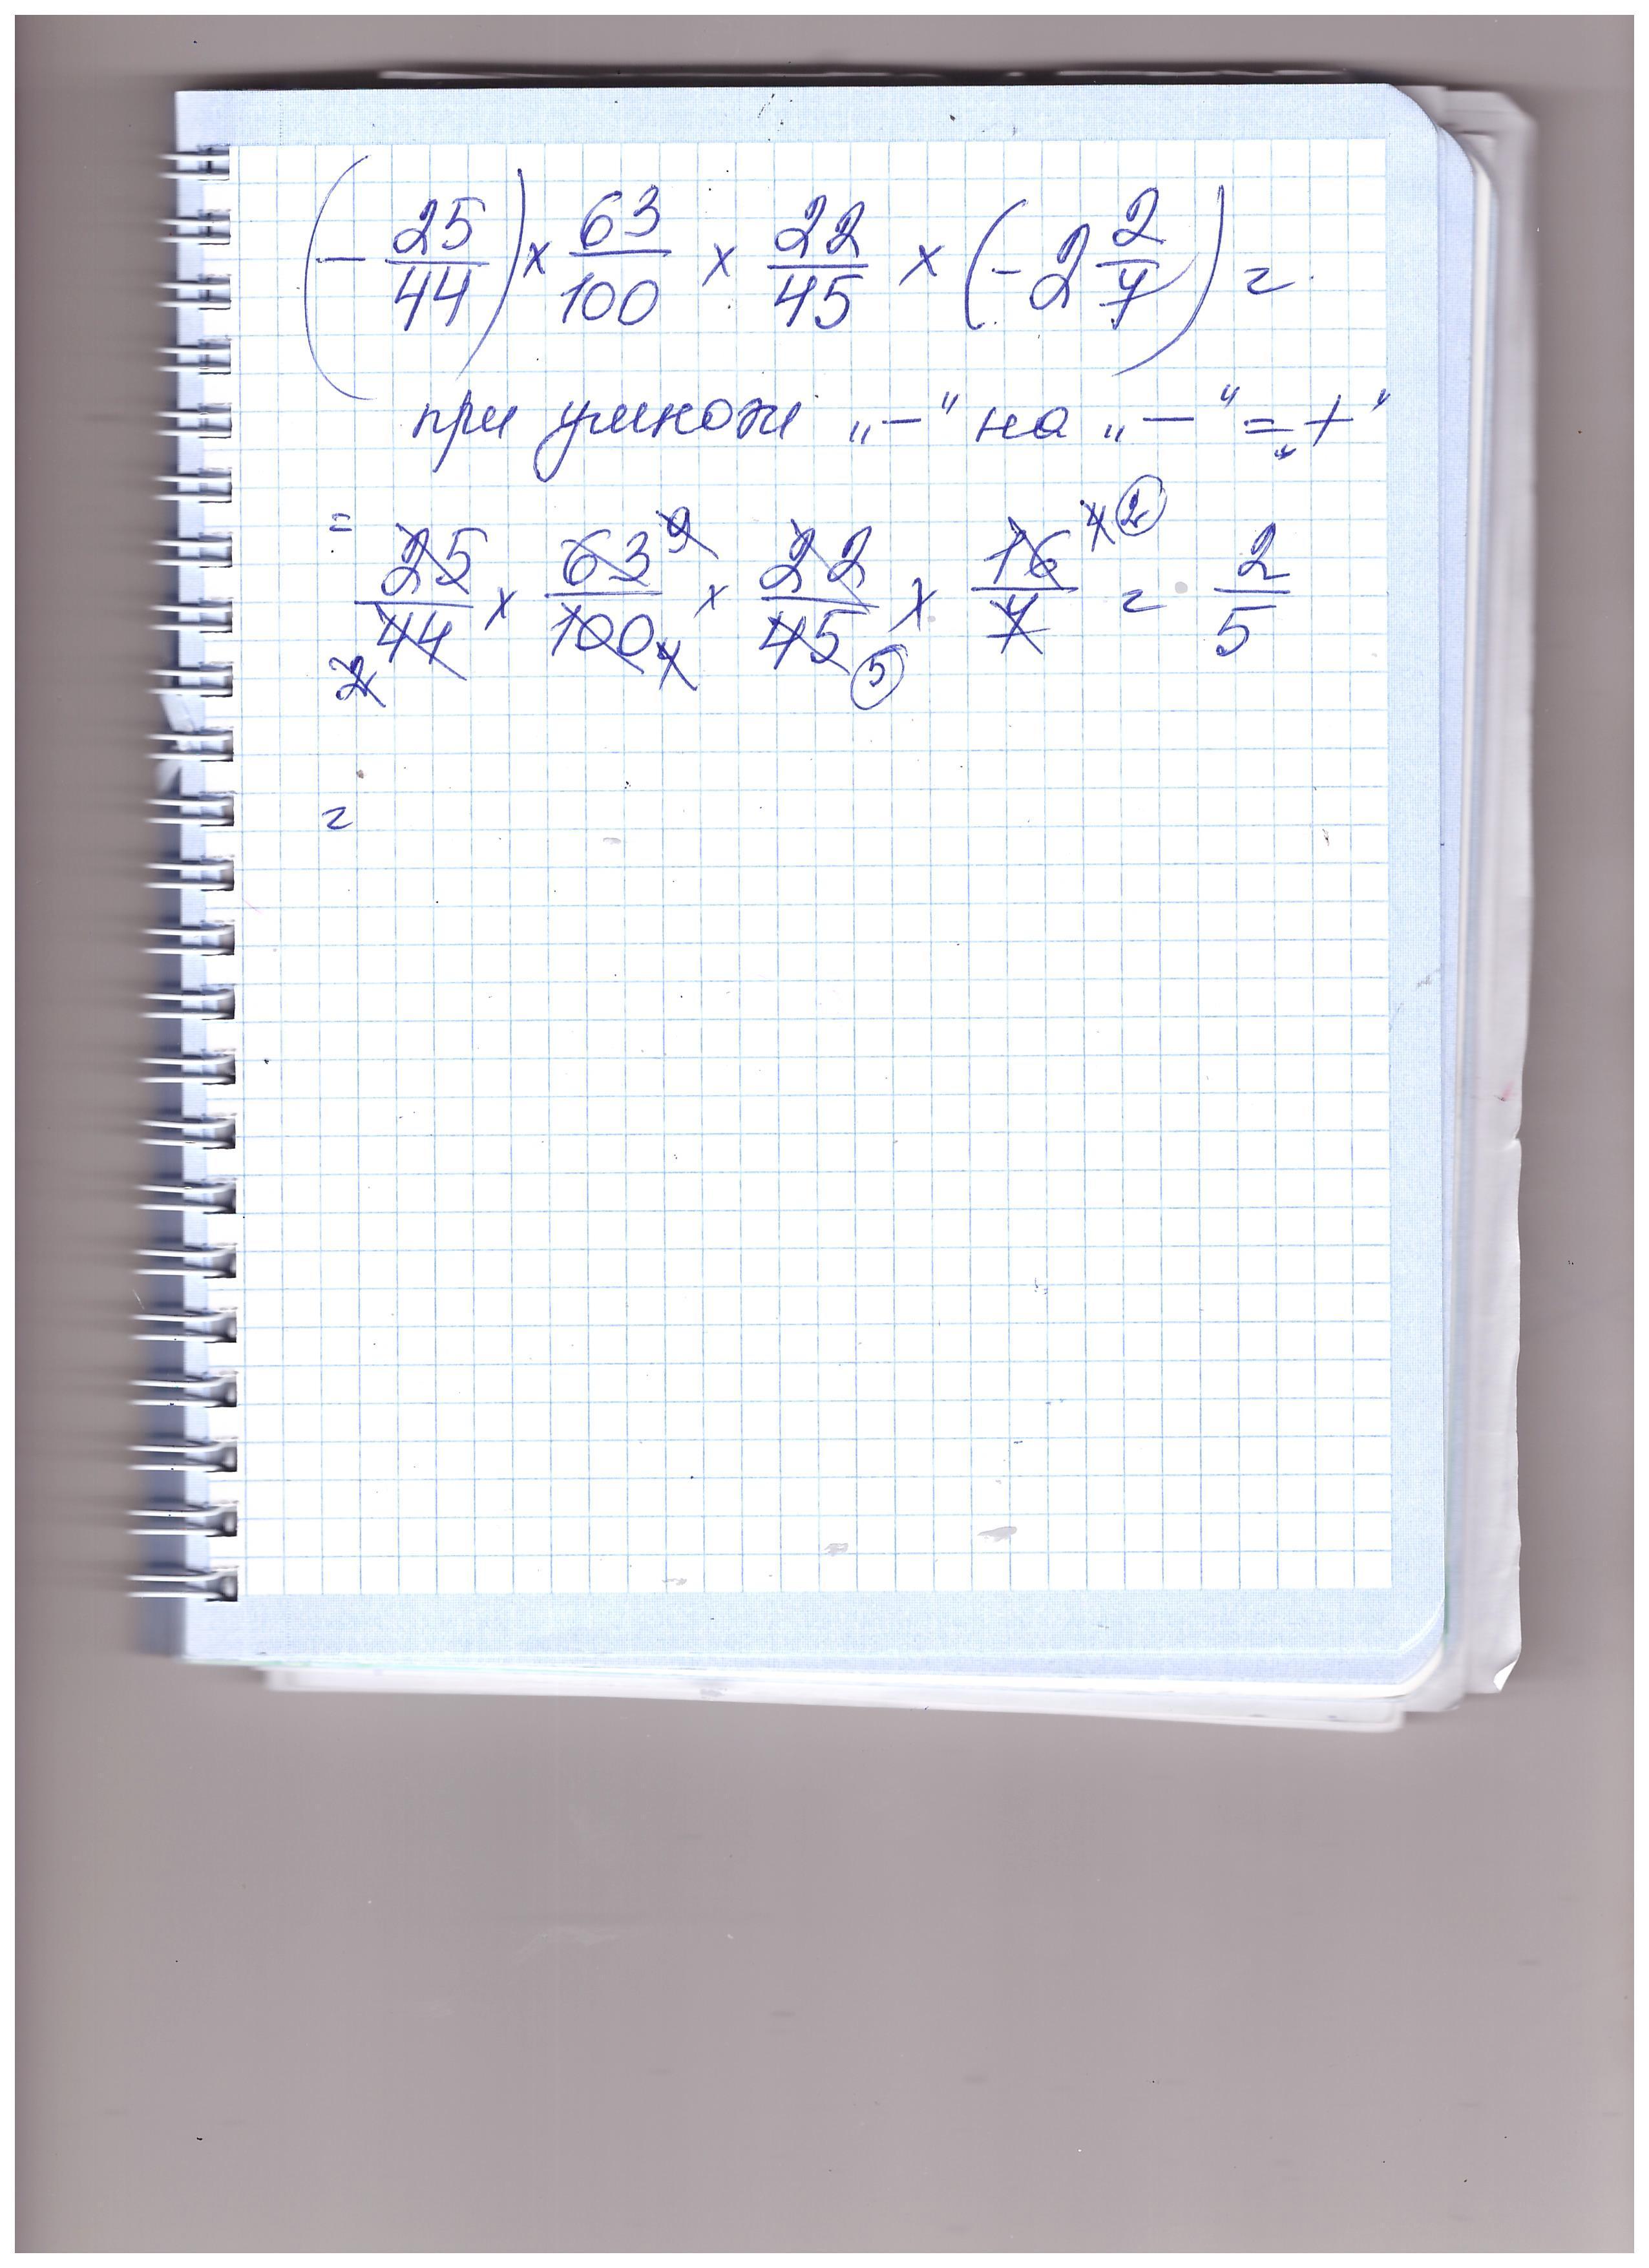 (- 25/44) × 63/100 × 22/45 × (- 2 2/7) =
при умнож „-“ на „-“ = „+“
= 25/44 × 63/100 × 22/45 × 16/7 = 2/5
2 9 4 5 4 2
=